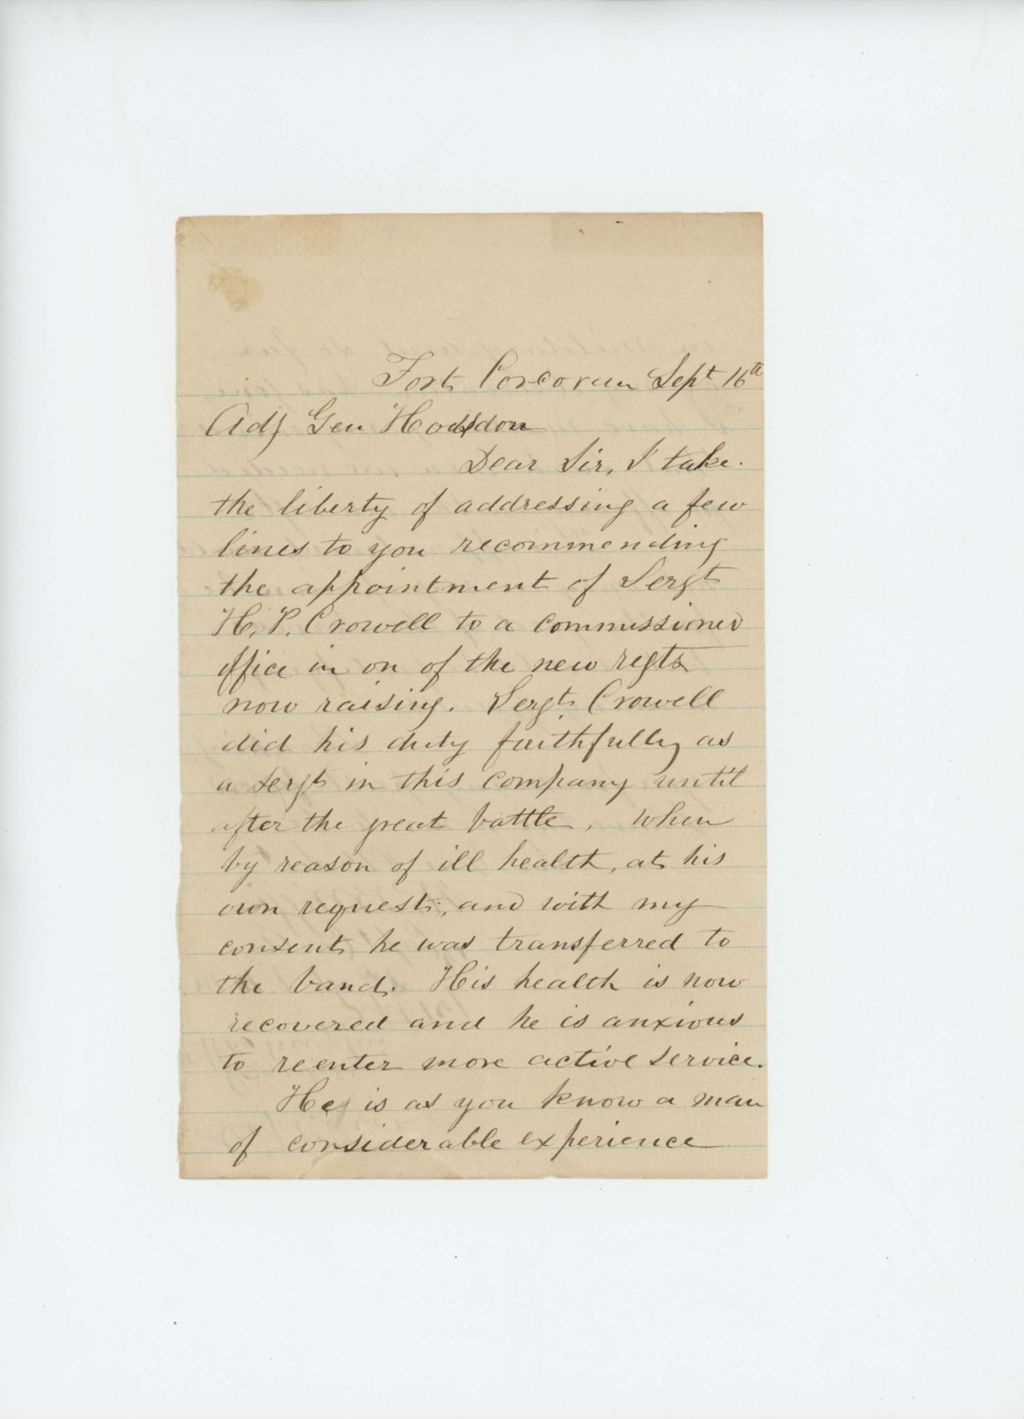 Fort Corcoran Sept 16th
Adj Gen Hodsdon
Dear Sir, I take
the liberty of addressing a few
lines to you recommending
the appointment of Sergt
H. P. Crowell to a commissioned
office in on of the new regts
now raising. Sergt Crowell
did his duty faithfully as
a sergt in this company until
after the great battle, when
by reason of ill health, at his
own request, and with my
consent he was transferred to
the band. His health is now
recovered and he is anxious
to reenter more active service.
He is as you know a man
of considerable experience